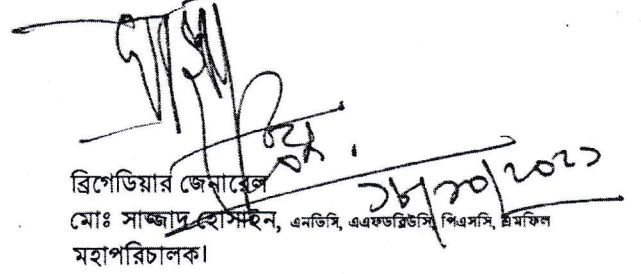 ১৮/১০/২০২১
ব্রিগেডিয়ার জেনারেল
মোঃ সাজ্জাদ হোসাইন, এনডিসি, এএফডব্লিউসি, পিএসসি, এমফিল
মহাপরিচালক।